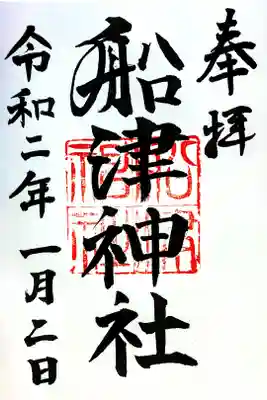 奉拝
船津神社
令和二年一月二日